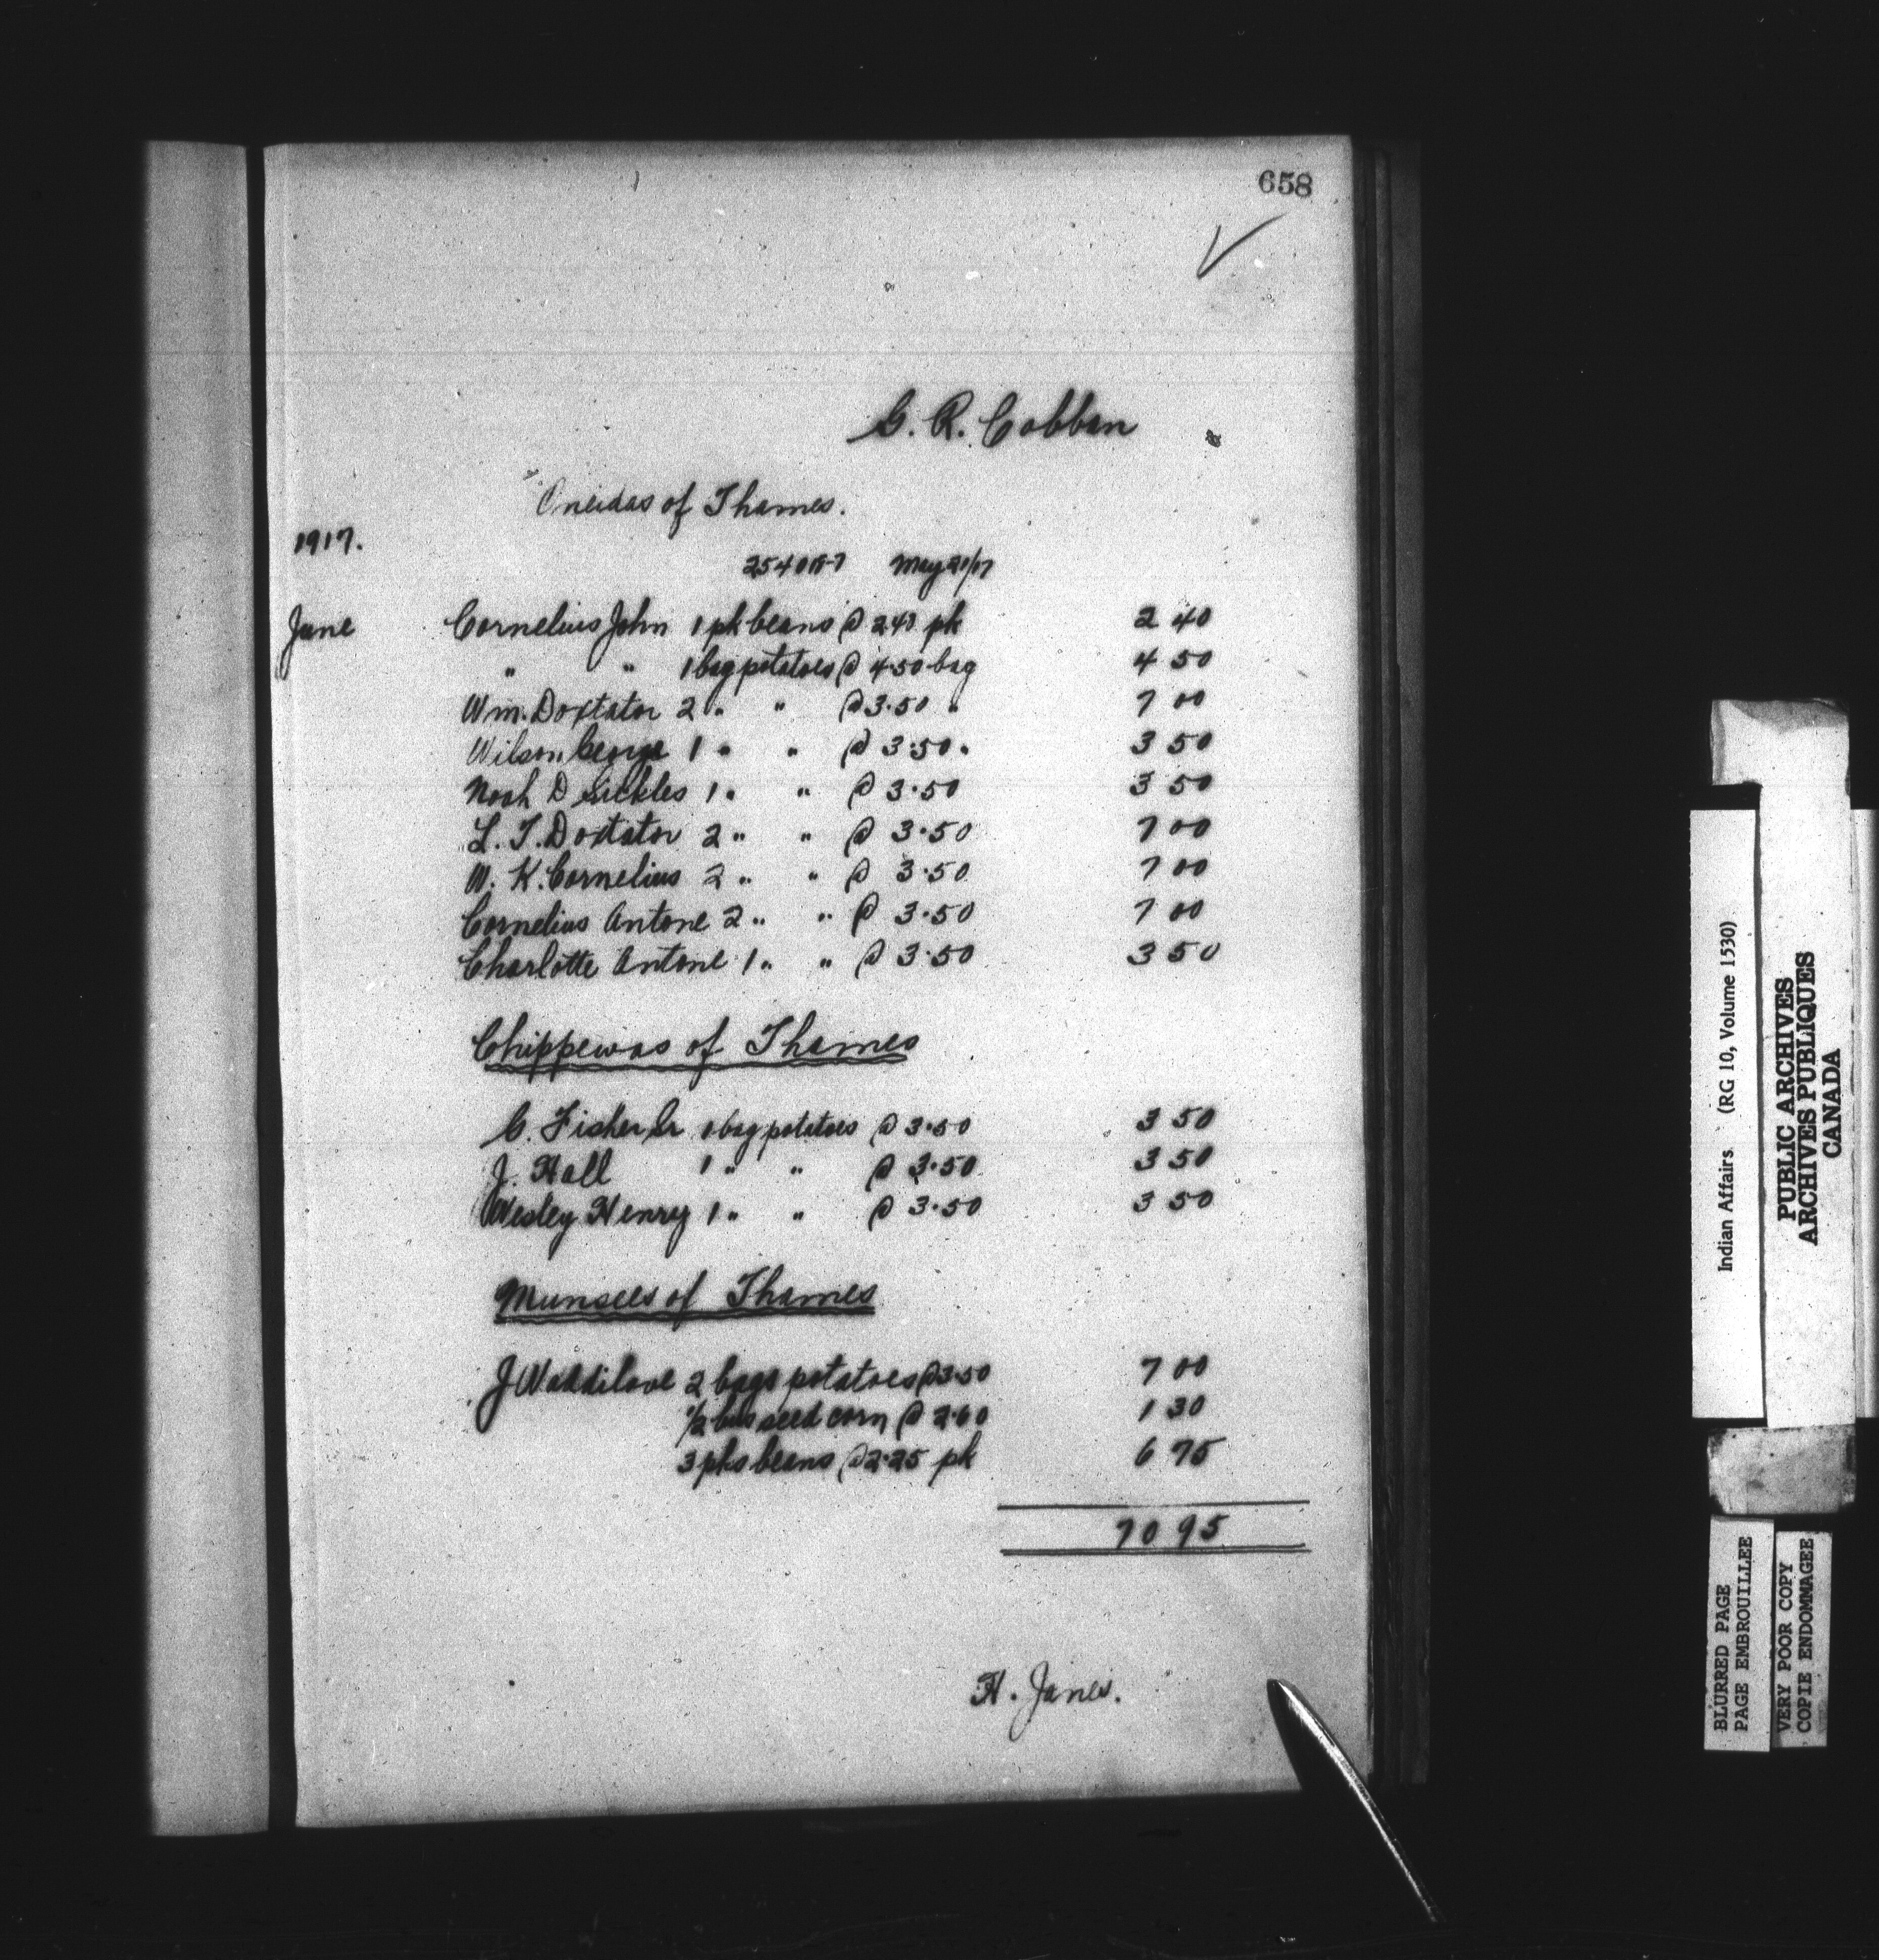 658
G. R. Cobban
Oneidas of Thames.
1917.
May 21/17
June Cornelius John 1 pk beans @ 240 pk 2 40
" " 1 bag potatoes @ 4.50 bag 4 50
Wm. Doxtator 2 " " @ 3.50 " 7 00
Wilson George 1 " " @ 3.50 " 3 50
Noah D Sickles 1 " " @ 3.50 3 50
L. T. Doxtator 2 " " @ 3.50 7 00
W. K. Cornelius 2 " " @ 3.50 7 00
Cornelius Antone 2 " " @ 3.50 7 00
Charlotte Antone 1 " " @ 3.50 3 50
Chippewas of Thames
C. Fisher Sr 1 bag potatoes @ 3.50 3 50
J. Hall 1 " " @ 3.50 3 50
Wesley Henry 1 " " @ 3.50 3 50
Munsees of Thames
J Waddilove 2 bags potatoes @ 3.50 7 00
1/2 bus seed corn @ 2.60 1 30
3 pks beans @ 2.25 pk 6 75
70 95
H. Janes.
Indian Affairs. (RG 10, Volume 1530)
PUBLIC ARCHIVES
ARCHIVES PUBLIQUES
CANADA
BLURRED PAGE
PAGE EMBROUILLEE
VERY POOR COPY
COPIE ENDOMMAGEE